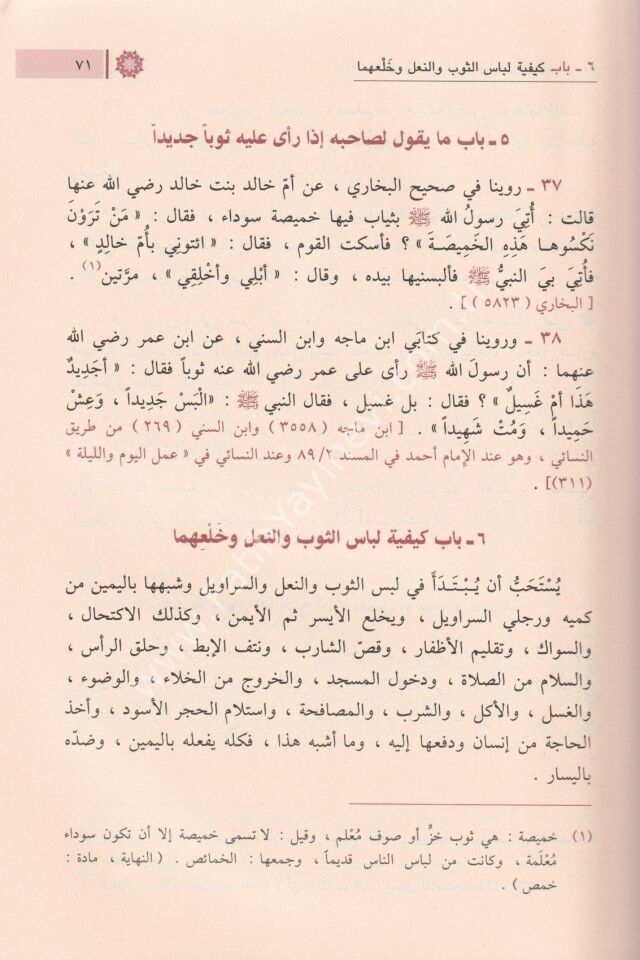 ٦ ـ باب كيفية لباس الثوب والنعل وخَلْعهما
٧١
٥ ـ باب ما يقول لصاحبه إذا رأى عليه ثوباً جديداً
٣٧ ـ روينا في صحيح البخاري ، عن أمّ خالد بنت خالد رضي الله عنها
قالت : أُتِيَ رسولُ الله ﷺ بثياب فيها خميصة سوداء ، فقال : « مَنْ تَرَوْنَ
نَكْسُوهـا هَذِهِ الخَمِيصَـةَ » ؟ فأسكت القوم ، فقال : « ائتوني بأُمّ خالدٍ » ،
فأُتِيَ بيَ النبيُّ ﷺ فألبسنيها بيده ، وقال : « أبْلِي وأخْلِقِي » ، مرّتين(١) .
[ البخاري ( ٥٨٢٣ ) ] .
٣٨ ـ وروينا في كتابَي ابن ماجه وابن السني ، عن ابن عمر رضي الله
عنهما : أن رسولَ الله ﷺ رأى على عمر رضي الله عنه ثوباً فقال : « أجَدِيدٌ
هَذَا أمْ غَسِيلٌ » ؟ فقال : بل غسيل ، فقال النبي ﷺ : « الْبَسْ جَدِيداً ، وَعِشْ
حَمِيداً ، وَمُتْ شَهِيداً » . [ ابن ماجه ( ٣٥٥٨ ) وابن السني ( ٢٦٩ ) من طريق
النسائي ، وهو عند الإمام أحمد في المسند ٨٩/٢ وعند النسائي في « عمل اليوم والليلة »
(٣١١)] .
٦ ـ باب كيفية لباس الثوب والنعل وخَلْعِهما
يُسْتَحَبُّ أن يُـبْـتَـدَأَ في لبس الثوب والنعل والسراويل وشبهها باليمين من
كميه ورجلي السراويل ، ويخلع الأيسر ثم الأيمن ، وكذلك الاكتحال ،
والسواك ، وتقليم الأظفار ، وقصّ الشارب ، ونتف الإبط ، وحلق الرأس ،
والسلام من الصلاة ، ودخول المسجد ، والخروج من الخلاء ، والوضوء ،
والغسل ، والأكل ، والشرب ، والمصافحة ، واستلام الحجر الأسود ، وأخذ
الحاجة من إنسان ودفعها إليه ، وما أشبه هذا ، فكله يفعله باليمين ، وضدّه
باليسار .
(١) خميصة : هي ثوب خزٍّ أو صوف مُعْلم ، وقيل : لا تسمى خميصة إلا أن تكون سوداء
مُعْلَمة ، وكانت من لباس الناس قديماً ، وجمعها : الخمائص . ( النهاية ، مادة :
خمص ) .